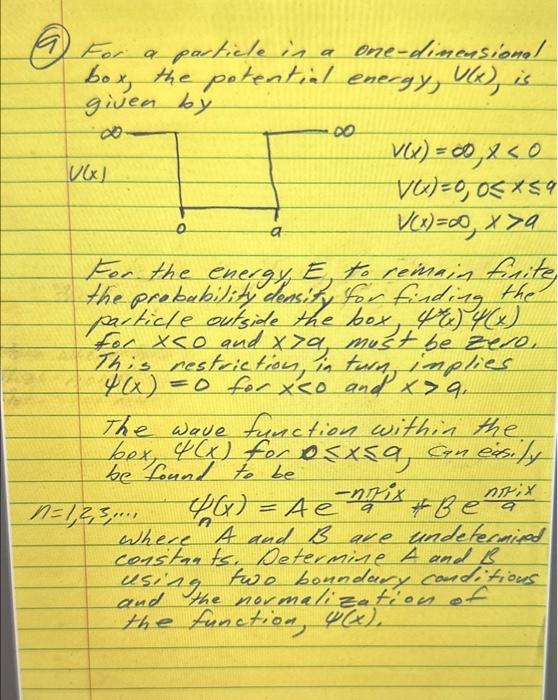 9) For a particle in a one-dimensional
box, the potential energy, V(x), is
given by
∞ ∞
V(x)
0 a
V(x) = ∞, x < 0
V(x) = 0, 0 ≤ x ≤ a
V(x) = ∞, x > a
For the energy, E, to remain finite,
the probability density for finding the
particle outside the box, ψ*(x) ψ(x)
for x<0 and x>a, must be zero.
This restriction, in turn, implies
ψ(x) = 0 for x<0 and x>a.
The wave function within the
box, ψ(x) for 0≤x≤a, can easily
be found to be
n=1,2,3,... ψₙ(x) = A e^(-nπix/a) + B e^(nπix/a)
where A and B are undetermined
constants. Determine A and B
using two boundary conditions
and the normalization of
the function, ψ(x).